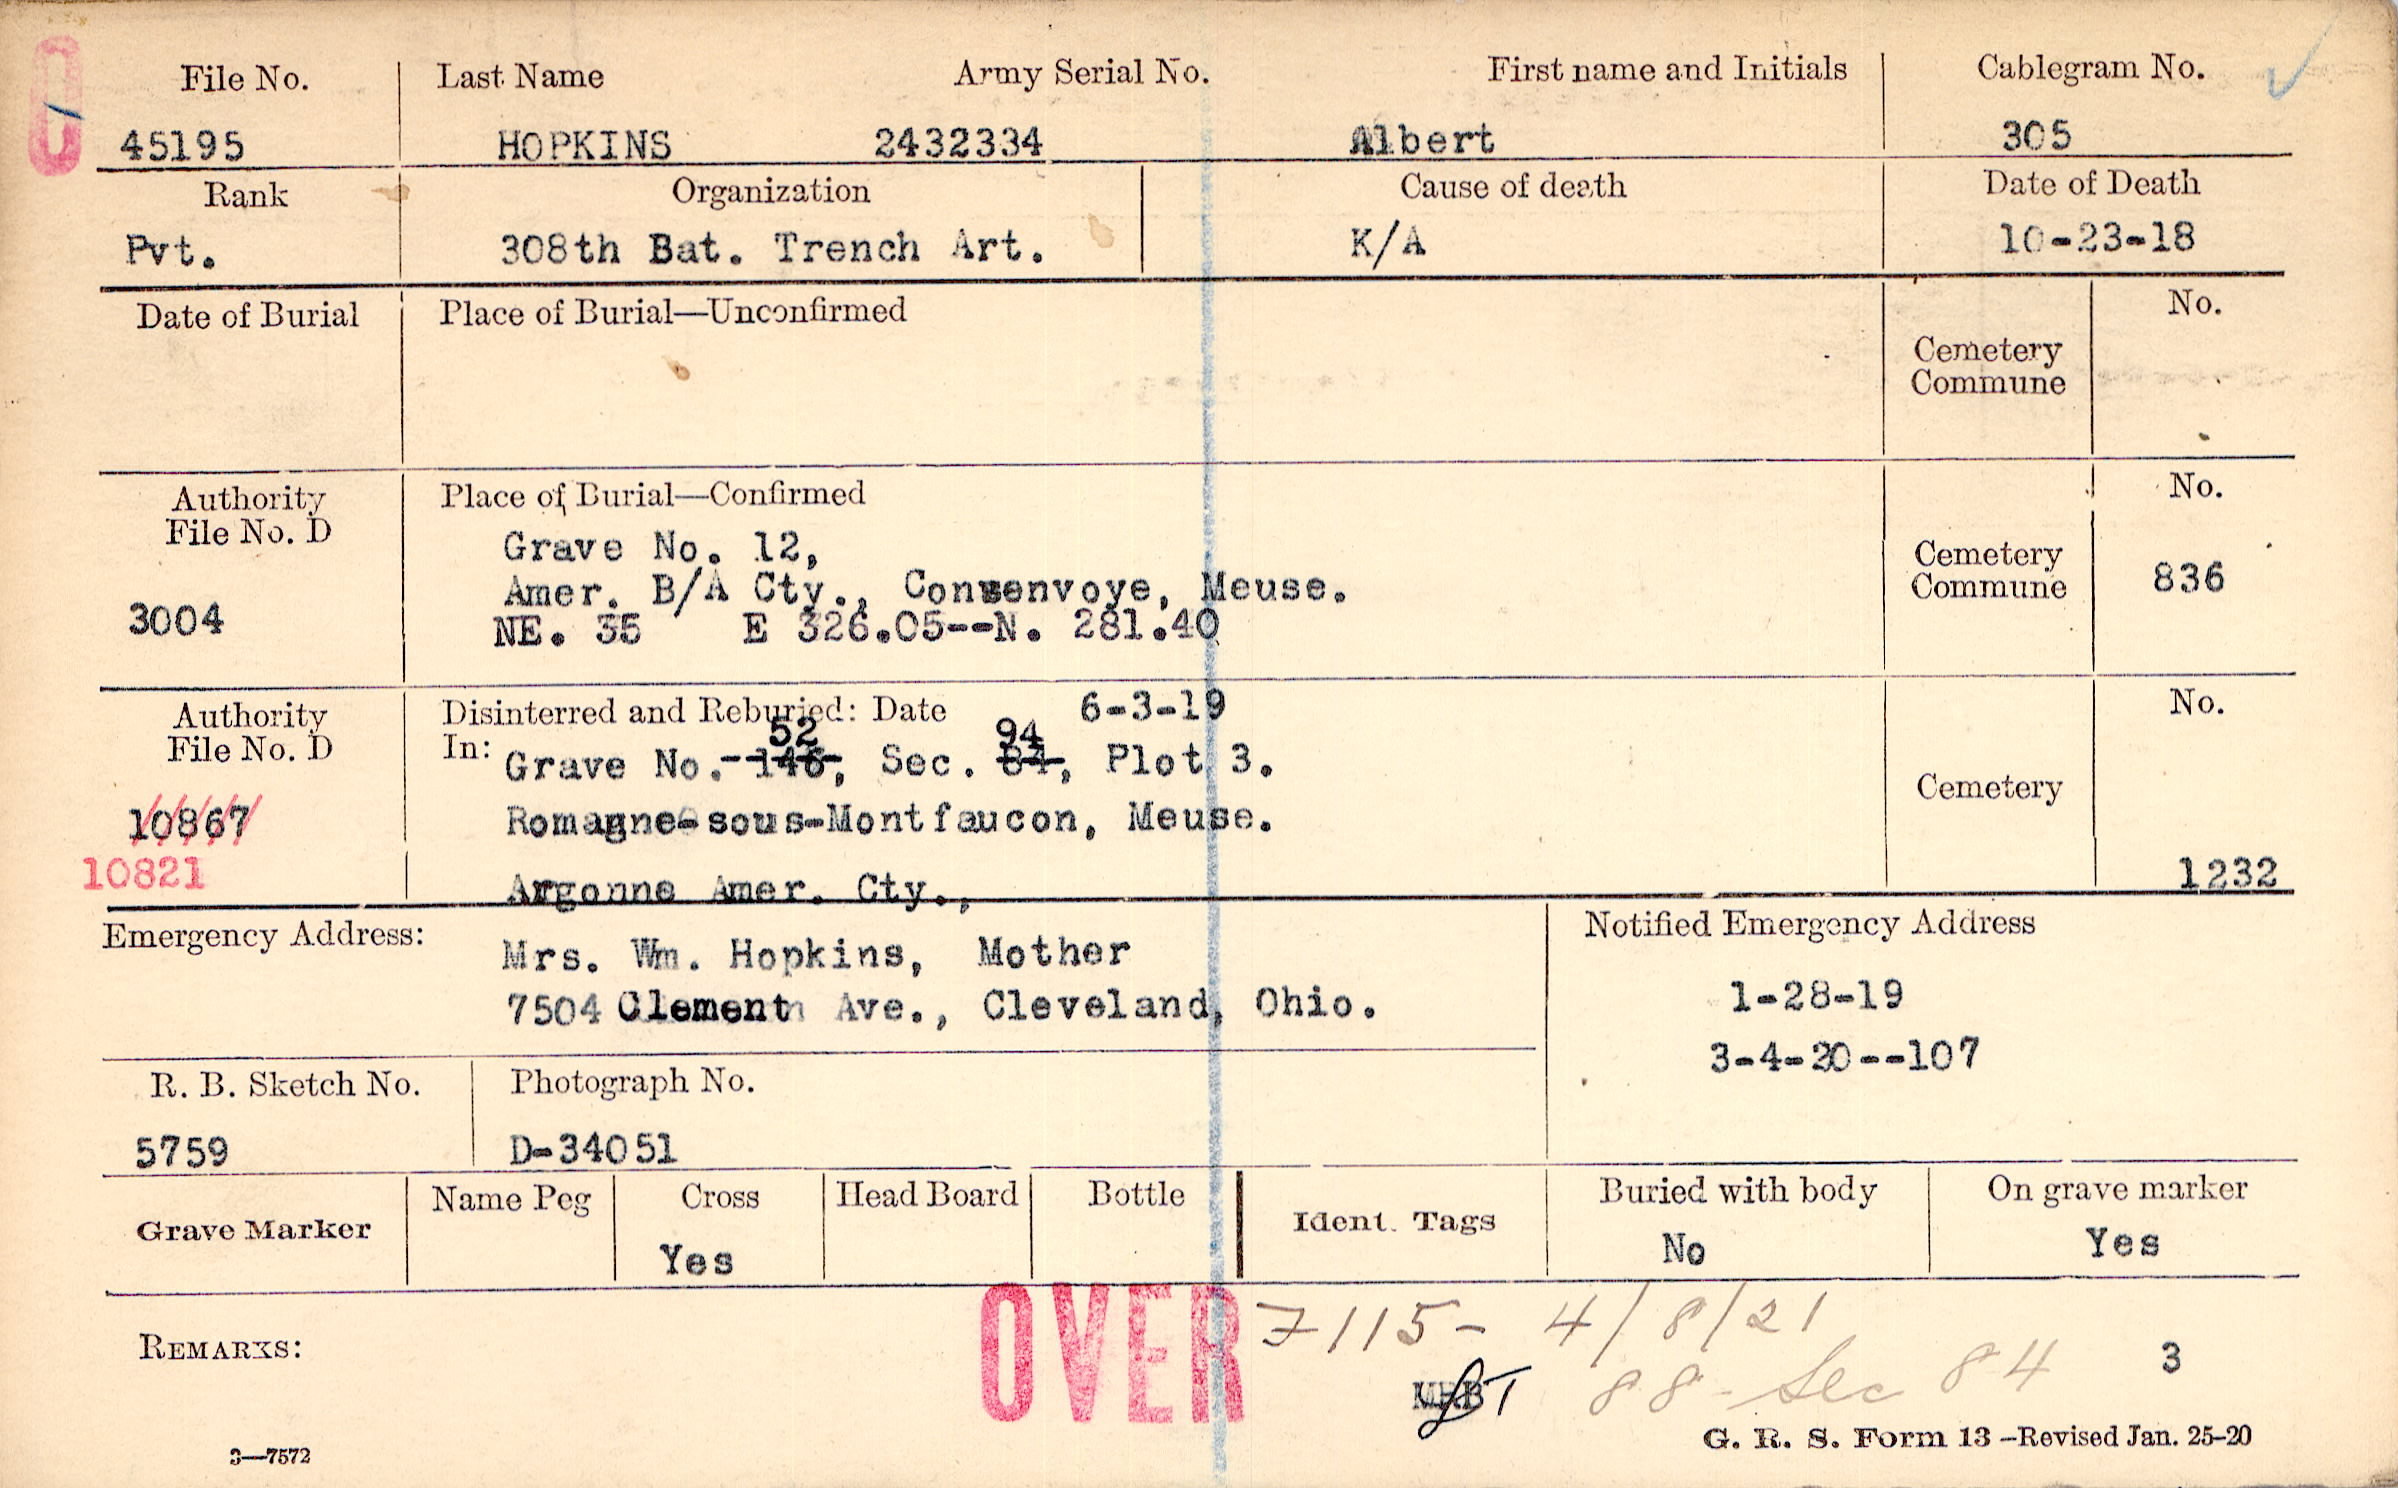 File No. Last Name Army Serial No. First name and Initials Cablegram No.
45195 HOPKINS 2432334 Albert 305
Rank Organization Cause of death Date of Death
Pvt. 308th Bat. Trench Art. K/A 10-23-18
Date of Burial Place of Burial—Unconfirmed No.
Cemetery
Commune
Authority Place of Burial—Confirmed No.
File No. D
Grave No. 12,
Amer. B/A Cty., Consenvoye, Meuse. Cemetery
Commune 836
3004 NE. 35 E 326.05--N. 281.40
Authority Disinterred and Reburied: Date 6-3-19 No.
File No. D In: 52 94
Grave No. 146, Sec. 84, Plot 3.
Cemetery
10867 Romagne-sous-Montfaucon, Meuse.
10821 Argonne Amer. Cty., 1232
Emergency Address: Notified Emergency Address
Mrs. Wm. Hopkins, Mother
7504 Clement Ave., Cleveland, Ohio. 1-28-19
3-4-20--107
R. B. Sketch No. Photograph No.
5759 D-34051
Grave Marker Name Peg Cross Head Board Bottle Ident. Tags Buried with body On grave marker
Yes No Yes
OVER 7115- 4/8/21
REMARKS: 3
88-Sec 84
3—7572 G. R. S. Form 13—Revised Jan. 25-20